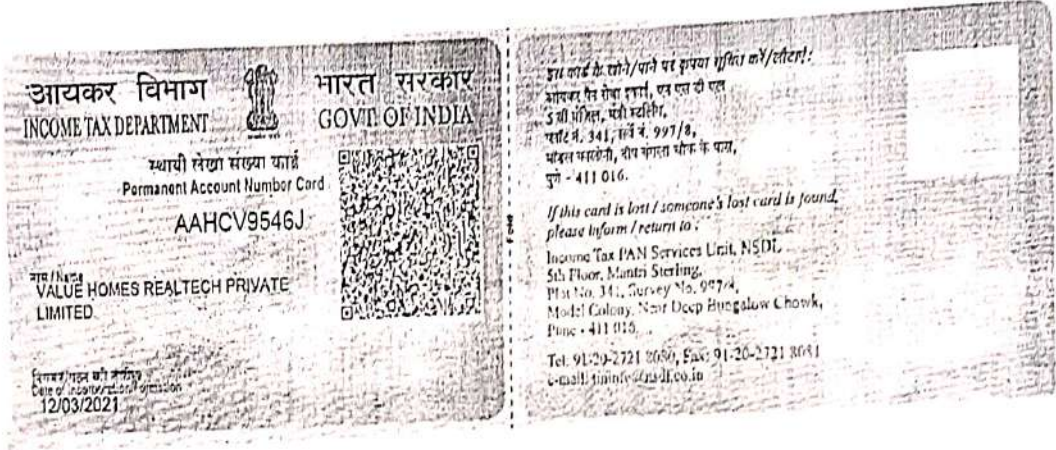 आयकर विभाग
INCOME TAX DEPARTMENT
भारत सरकार
GOVT. OF INDIA
स्थायी लेखा संख्या कार्ड
Permanent Account Number Card
AAHCV9546J
नाम / Name
VALUE HOMES REALTECH PRIVATE
LIMITED
Date of Incorporation/Formation
12/03/2021
इस कार्ड के खोने/पाने पर कृपया सूचित करें/लौटाएं:
आयकर पैन सेवा इकाई, एन एस डी एल
5 वी मंजिल, मंत्री स्टर्लिंग,
प्लॉट नं. 341, सर्वे नं. 997/8,
मॉडल कालोनी, दीप बंगला चौक के पास,
पुणे - 411 016.
If this card is lost / someone's lost card is found,
please inform / return to :
Income Tax PAN Services Unit, NSDL
5th Floor, Mantri Sterling,
Plot No. 341, Survey No. 997/8,
Model Colony, Near Deep Bungalow Chowk,
Pune - 411 016.
Tel: 91-20-2721 8080, Fax: 91-20-2721 8081
e-mail: tininfo@nsdl.co.in